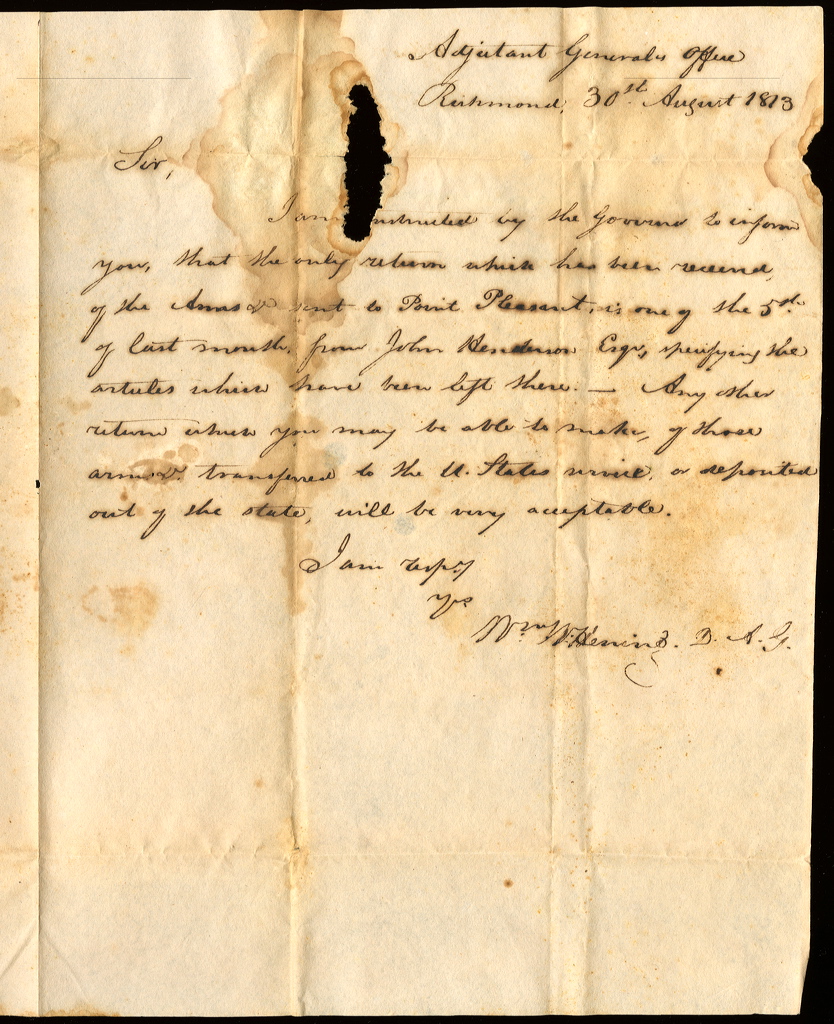 Adjutant Generals Office
Richmond, 30st August 1813
Sir,
I am instructed by the Governor to inform
you, that the only return which has been received,
of the Arms &c sent to Point Pleasant, is one of the 5th
of last month, from John Henderson Esqr, specifying the
articles which have been left there. — Any other
return which you may be able to make, of those
arms &c. transferred to the U. States service, or deposited
out of the state, will be very acceptable.
I am respy
Yrs
Wm W. Hening. D. A. G.